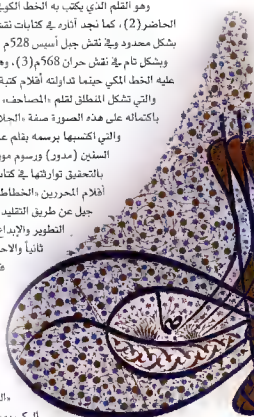 وهو القلم الذي يكتب به الخط الكو
الحاضر(2)، كما نجد آثاره في كتابات نقش
بشكل محدود وفي نقش جبل أسيس 528م
وبشكل تام في نقش حران 568م(3)، وه
عليه الخط المكي حينما تداولته أقلام كتبة
والتي تشكل المنطلق لقلم «المصاحف»
باكتماله على هذه الصورة صفة «الجلا
والتي اكتسبها برسمه بقلم عـ
السفين (مدور) ورسوم مو
بالتحقيق توارثتها في كتاب
أقلام المحررين «الخطاط
جيل عن طريق التقليد
التطوير والإبداع
ثانياً والاحـ